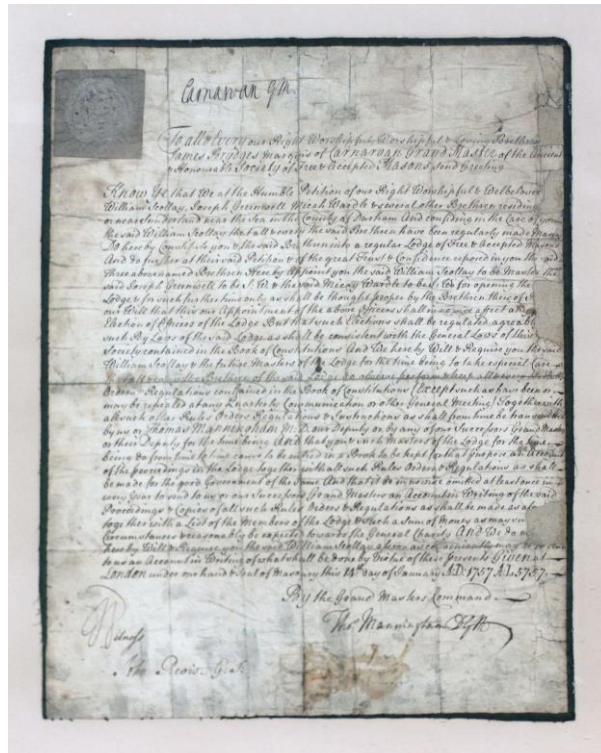 Carnarvan G.M.
To all & Every our Right Worshipful, Worshipful & Loving Brethren
James Brydges Marquis of Carnarvan Grand Master of the Ancient
& Honourable Society of Free & Accepted Masons, send Greeting
Know Ye that We at the Humble Petition of our Right Worshipful & Welbeloved
William Scollay, Joseph Greenwell Micah Wardle & several other Brethren residing
or near Sunderland near the Sea in the County of Durham And confiding in the Care of you
the said William Scollay that all & every the said Brethren have been regularly made Masons
Do hereby Constitute you & the said Brethren into a regular Lodge of Free & Accepted Masons
And do further at their said Petition & of the great Trust & Confidence reposed in you the said
Three abovenamed Brethren Hereby Appoint you the said William Scollay to be Master, the
said Joseph Greenwell to be S. W. & the said Micah Wardle to be J. W. for opening the
Lodge & for such further time only as shall be thought proper by the Brethren thereof
our Will that this our Appointment of the above Officers shall in no wise affect any
Election of Officers of the Lodge But that such Elections shall be regulated agreeable
such By Laws of the said Lodge as shall be consistent with the General Laws of this
Society contained in the Book of Constitutions And We hereby Will & Require you the said
William Scollay & the future Masters of the Lodge for the time being to take especial Care
all & every the Brethren of the said Lodge do observe perform
Orders Regulations contained in the Book of Constitutions (Except such as have been or
may be repealed at any Quarterly Communication or other General Meeting) Together with
all such other Rules Orders Regulations & Instructions as shall from time be transmitted
by us or Thomas Manningham M. D. our Deputy or by any of our Successors Grand Master
or their Deputy for the time being And that you & such Masters of the Lodge for the time
being do from time to time cause to be entered in a Book to be kept for that Purpose an Account
of the proceedings in the Lodge together with all such Rules Orders & Regulations as shall
be made for the good Government of the same And that you do in no wise omitt at least once in
every Year to send to us or our Successors Grand Masters an Account in Writing of the said
Proceedings & Copies of all such Rules Orders & Regulations as shall be made as
together with a List of the Members of the Lodge & such a Sum of Money as may
Circumstances & reasonably be expected towards the General Charity And We do
hereby Will & Require you the said William Scollay
to us an Account in Writing of what shall be done by Virtue of these presents Given at
London under our hand & Seal of Masonry this 14th day of January A.D: 1757 A.L. 5757.
By the Grand Masters Command
Tho: Manningham D.G.M.
Witness
Jno Revis. G. S.